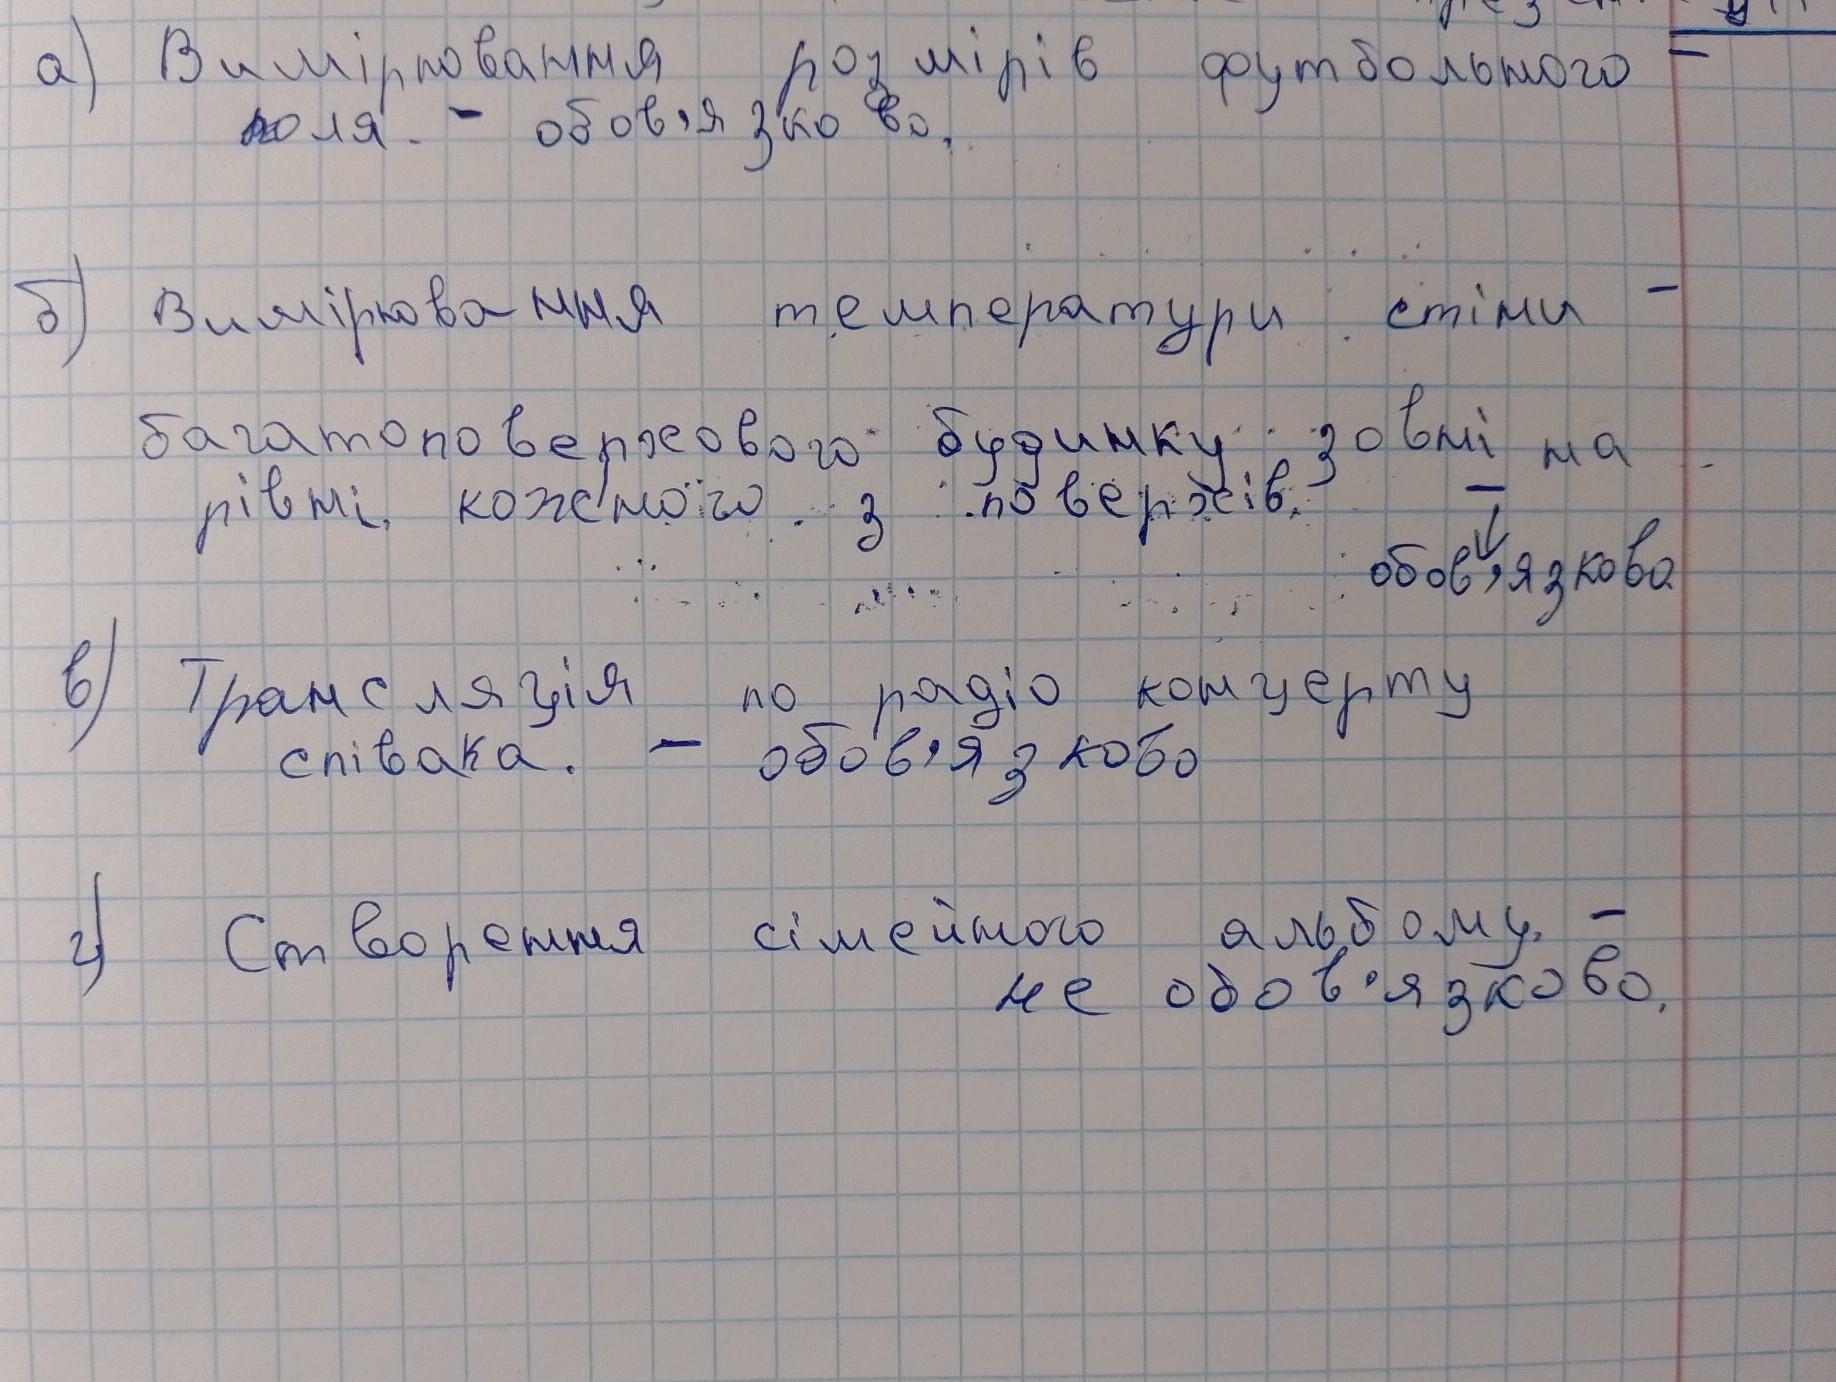 а) Вимірювання розмірів футбольного -
поля. - обов'язково.
б) Вимірювання температури стіни -
багатоповерхового будинку зовні на
рівні кожного з поверхів. -
обов'язково
в) Трансляція по радіо концерту
співака. - обов'язково
г) Створення сімейного альбому. -
не обов'язково.